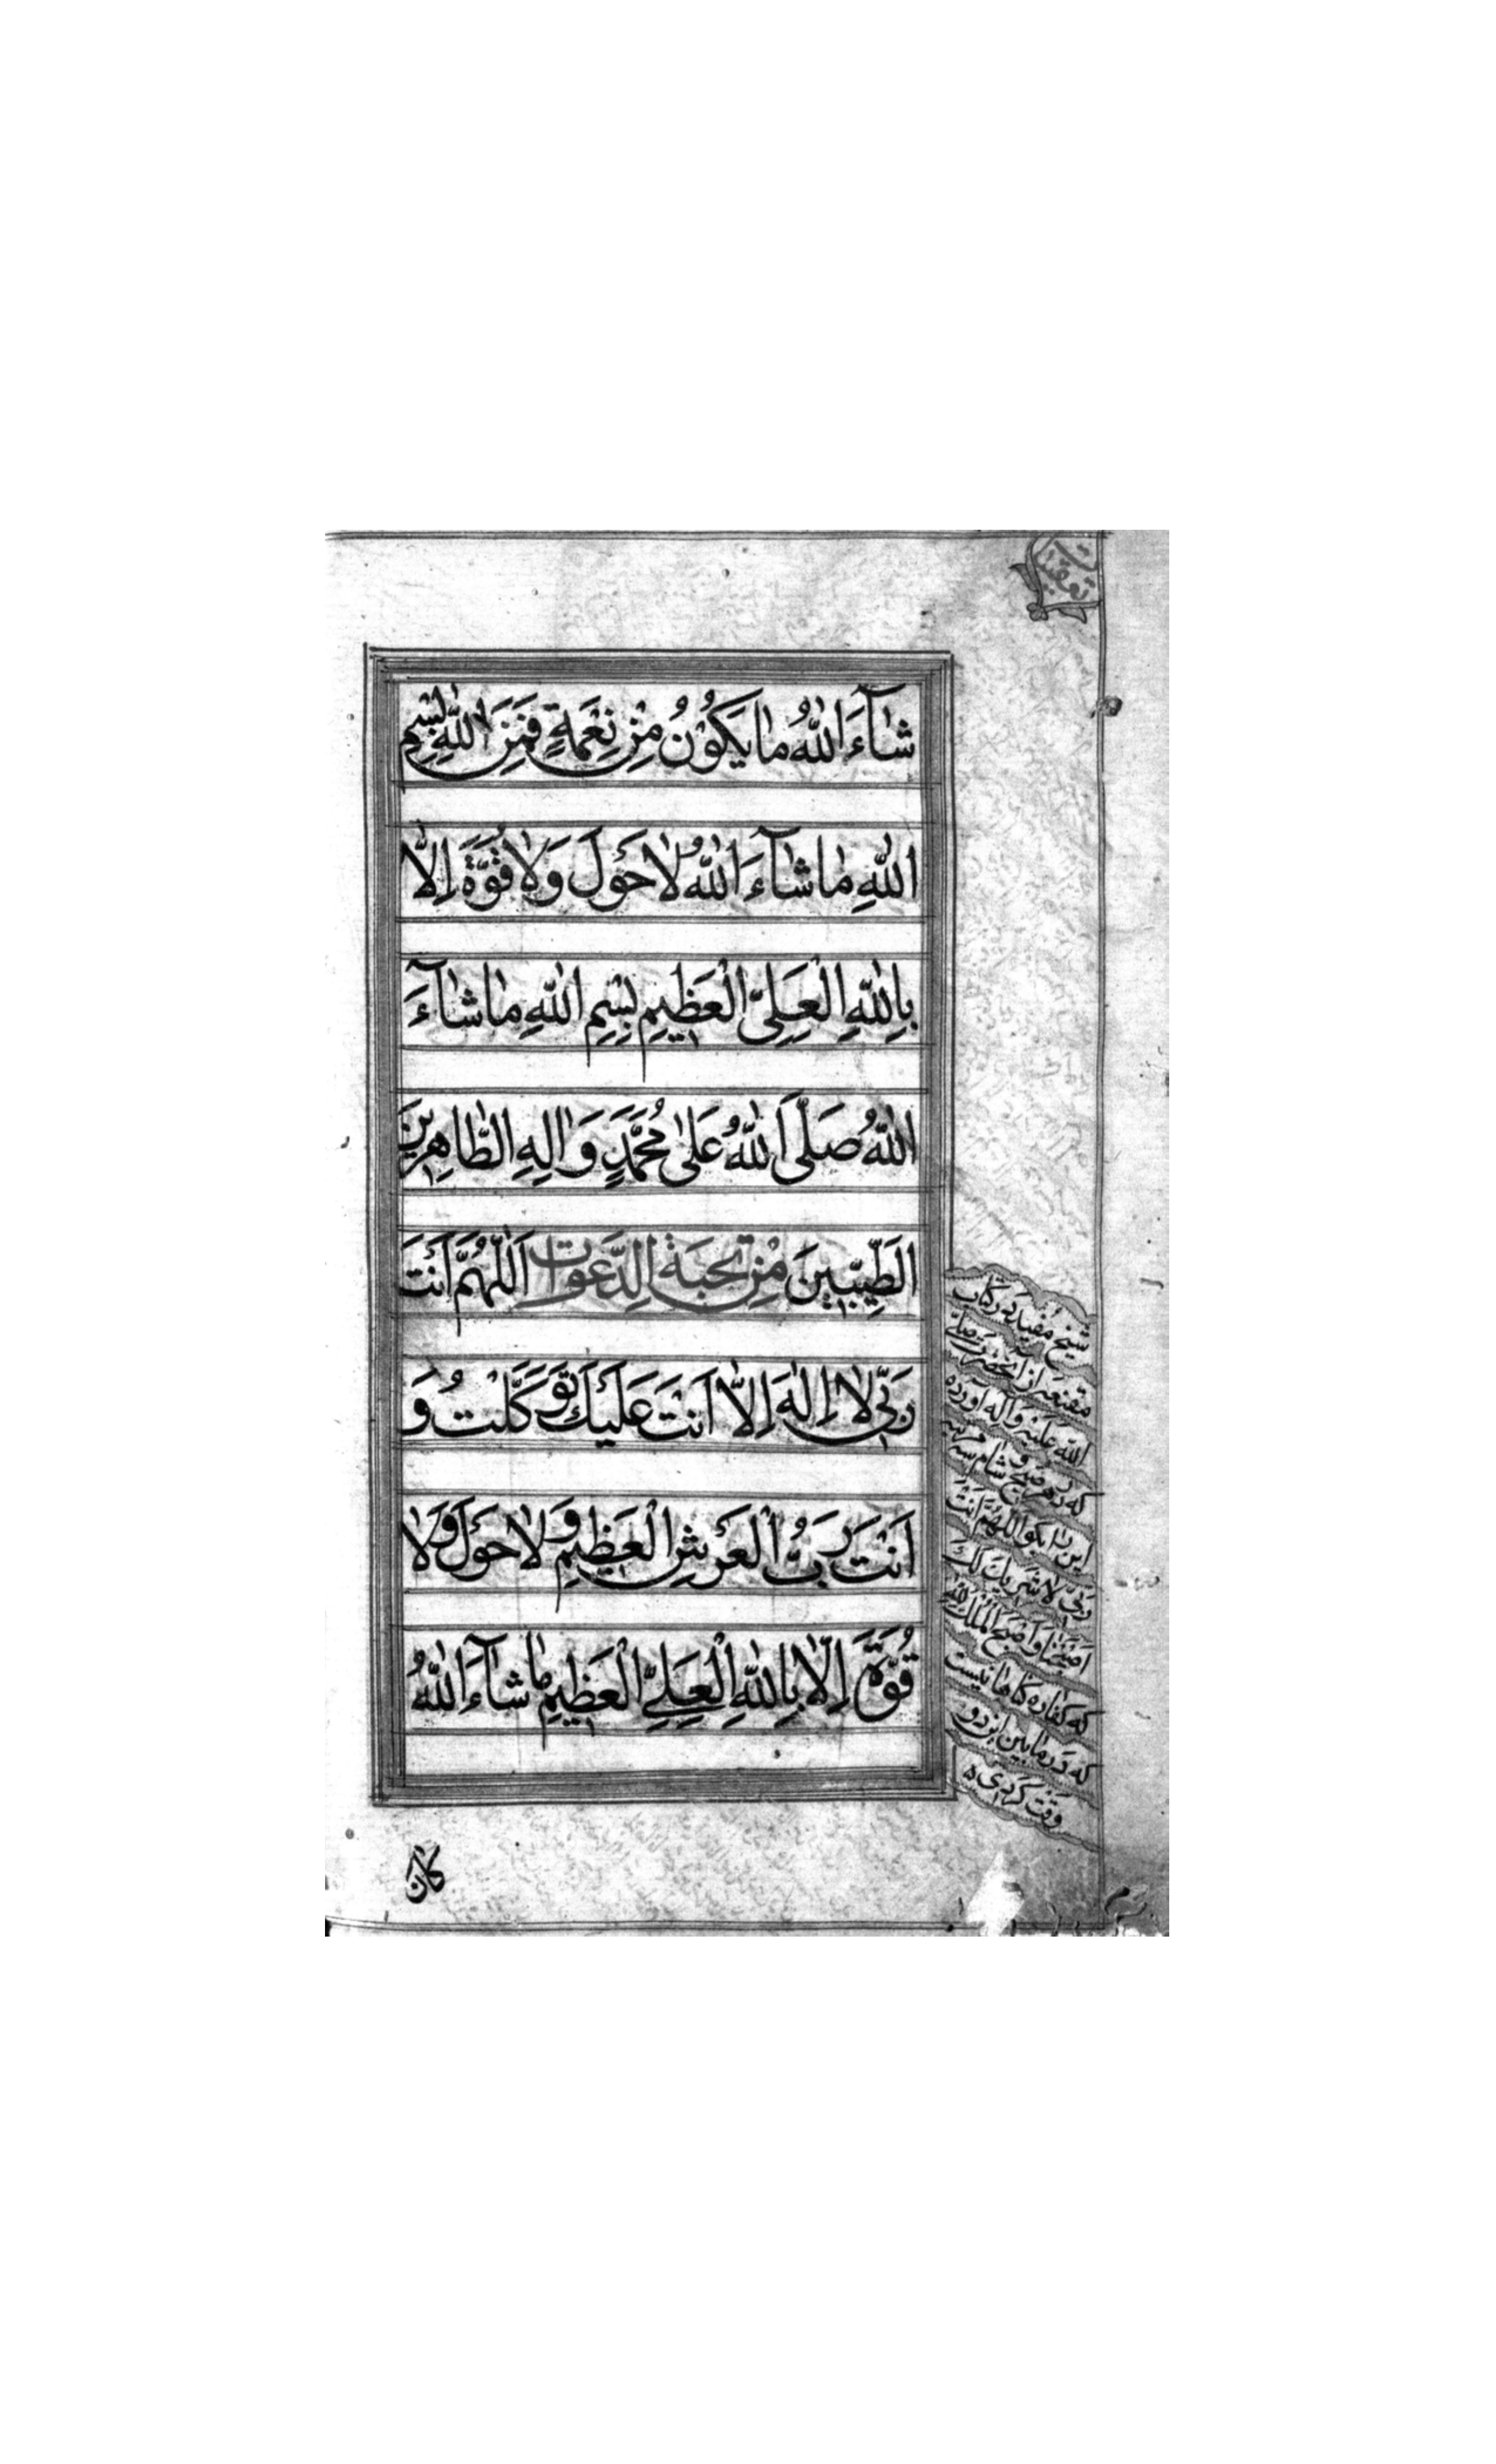 شَآءَ اللّٰهُ مٰا يَكُوْنُ مِنْ نِعْمَةٍ فَمِنَ اللّٰهِ بِسْمِ
اللّٰهِ مٰا شٰآءَ اللّٰهُ لٰا حَوْلَ وَلٰا قُوَّةَ اِلّٰا
بِاللّٰهِ الْعَلِىِّ الْعَظِيْمِ بِسْمِ اللّٰهِ مٰا شٰآءَ
اللّٰهُ صَلَّى اللّٰهُ عَلىٰ مُحَمَّدٍ وَاٰلِهِ الطّٰاهِرِيْنَ
الطَّيِّبِيْنَ مِنْ الدَّعَوٰات اَللّٰهُمَّ اَنْتَ
رَبِّى لٰا اِلٰهَ اِلّٰا اَنْتَ عَلَيْكَ تَوَكَّلْتُ وَ
اَنْتَ رَبُّ الْعَرْشِ الْعَظِيْمِ وَلٰا حَوْلَ وَلٰا
قُوَّةَ اِلّٰا بِاللّٰهِ الْعَلِيِّ الْعَظِيْمِ مٰا شٰآءَ اللّٰهُ
كان
تعقيبات
شيخ مفيد در كتاب
مقنعه از انحضرت صلّى
اللّه عليه واله اورده
كه در هر صبح و شام سه مرتبه
اين را بكو اللهمّ انت
ربّى لا شريك لك
اصبحنا و اصبح الملك للّه
كه كفاره كناهانيست
كه در مابين اين دو
وقت كردى